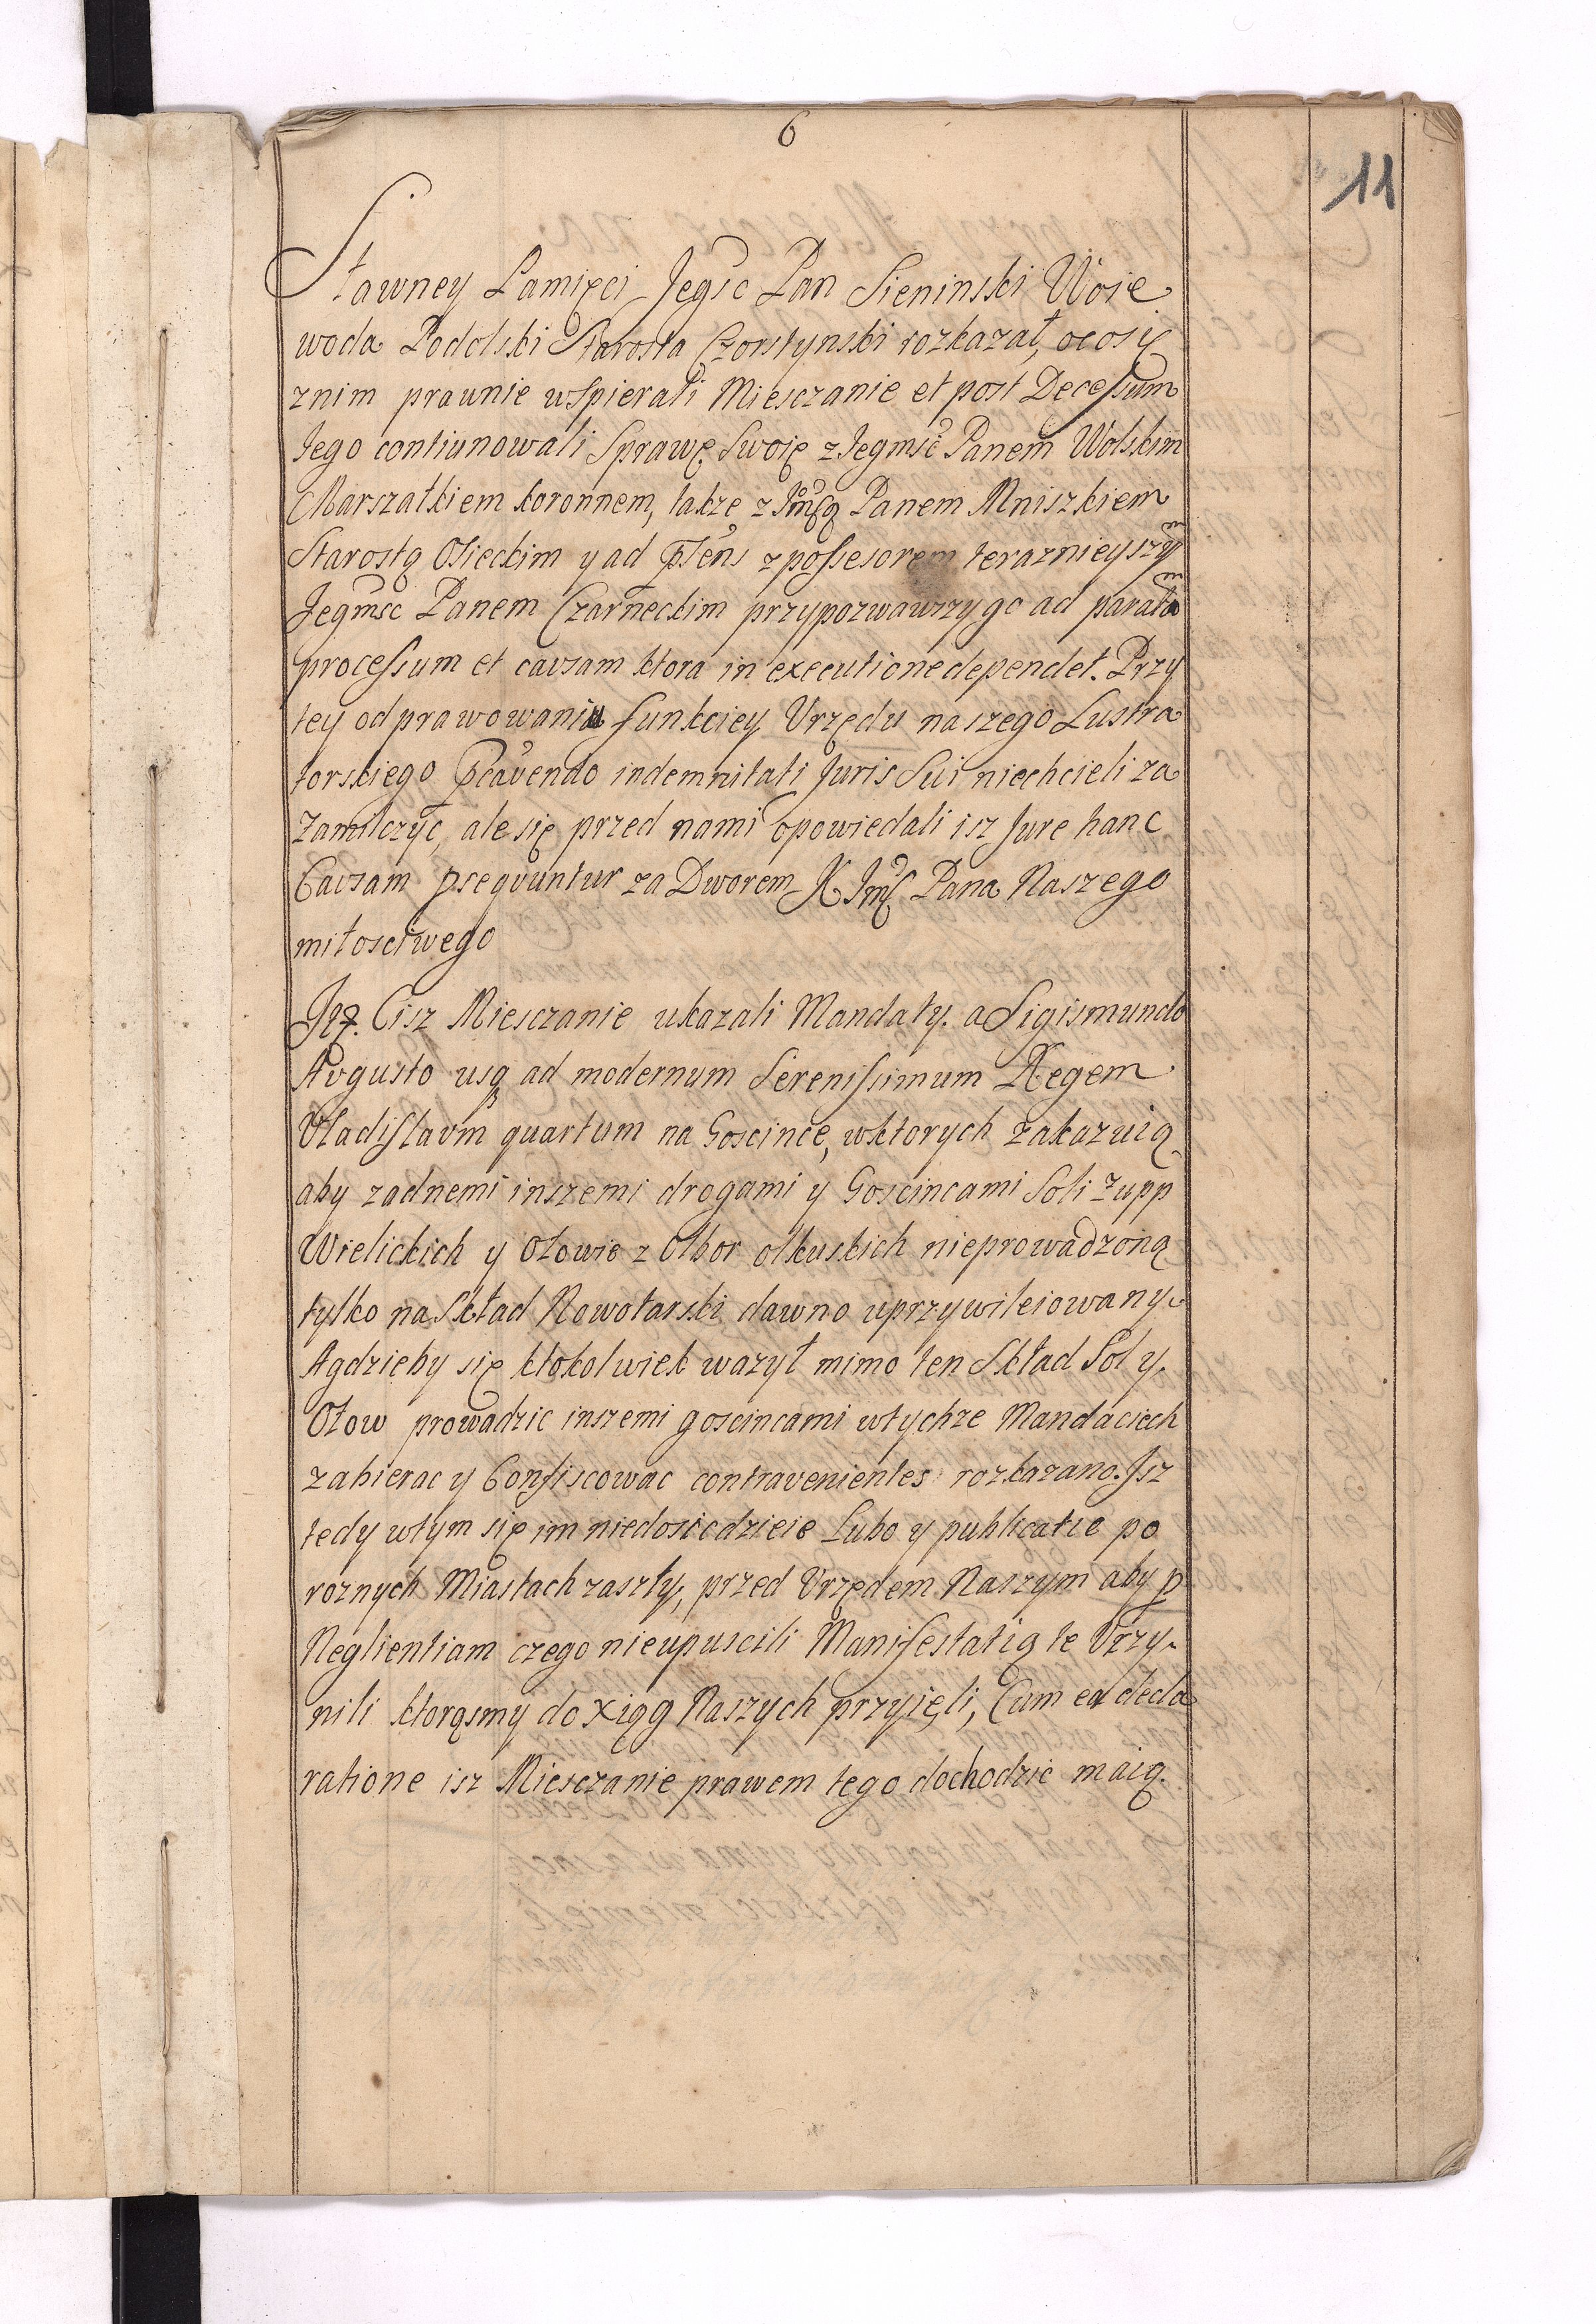 6
11
Sławney Pamięci Jegsc Pan Sieninski Woie
woda Podolski Starosta Czorstynski rozkazał, ocosię
znim prawnie uspierali Miesczanie et post Decessum
Jego contiunowali Sprawę Swoię z Jegmsc Panem Wolskim
Marszałkiem koronnem, takze z Jmsą Panem Mniszkiem
Starostą Osieckim y ad pñs zpossesorem terazniey szym
Jegmsc Panem Czarneckim przypozwawszy go ad paratum
processum et causam ktora in executione dependet. Przy
tey odprawowaniu funkciey Vrzędu naszego Lustra
torskiego Pcavendo indemnitati Juris Sui niechcieli za
zamilczyc, ale się przed nami opowiedali isz Jure hanc
Causam psequuntur za Dworem K Jms Pana Naszego
miłosciwego
Itq. Cisz Miesczanie ukazali Mandaty. a Sigismundo
Avgusto usq ad modernum Serenissimum Regem
Vladislavm quartum na Goscince, wktorych zakazuią
aby zadnemi inszemi drogami y Goscincami Soli zupp
Wielickich y Ołowie z Olbor olkuskich nieprowadzoną
tylko na Skład Nowotarski dawno uprzywileiowany.
Agdzieby się ktokolwiek wazył mimo ten Skład Sol y.
Ołow prowadzic inszemi goscincami wtychze Mandaciech
zabierac y Confiscowac contravenientes rozkazano. Jsz
tedy wtym się im niedosicdzieie Lubo y publicatie po
roznych Miastach zaszły, przed Vrzędem Naszym aby p
Neglientiam czego nieupuscili Manifestatią te Vrzy-
nili ktorąsmy do xiąg Naszych przyięli, Cum ea decla
ratione isz Miesczanie prawem tego dochodzic maią.